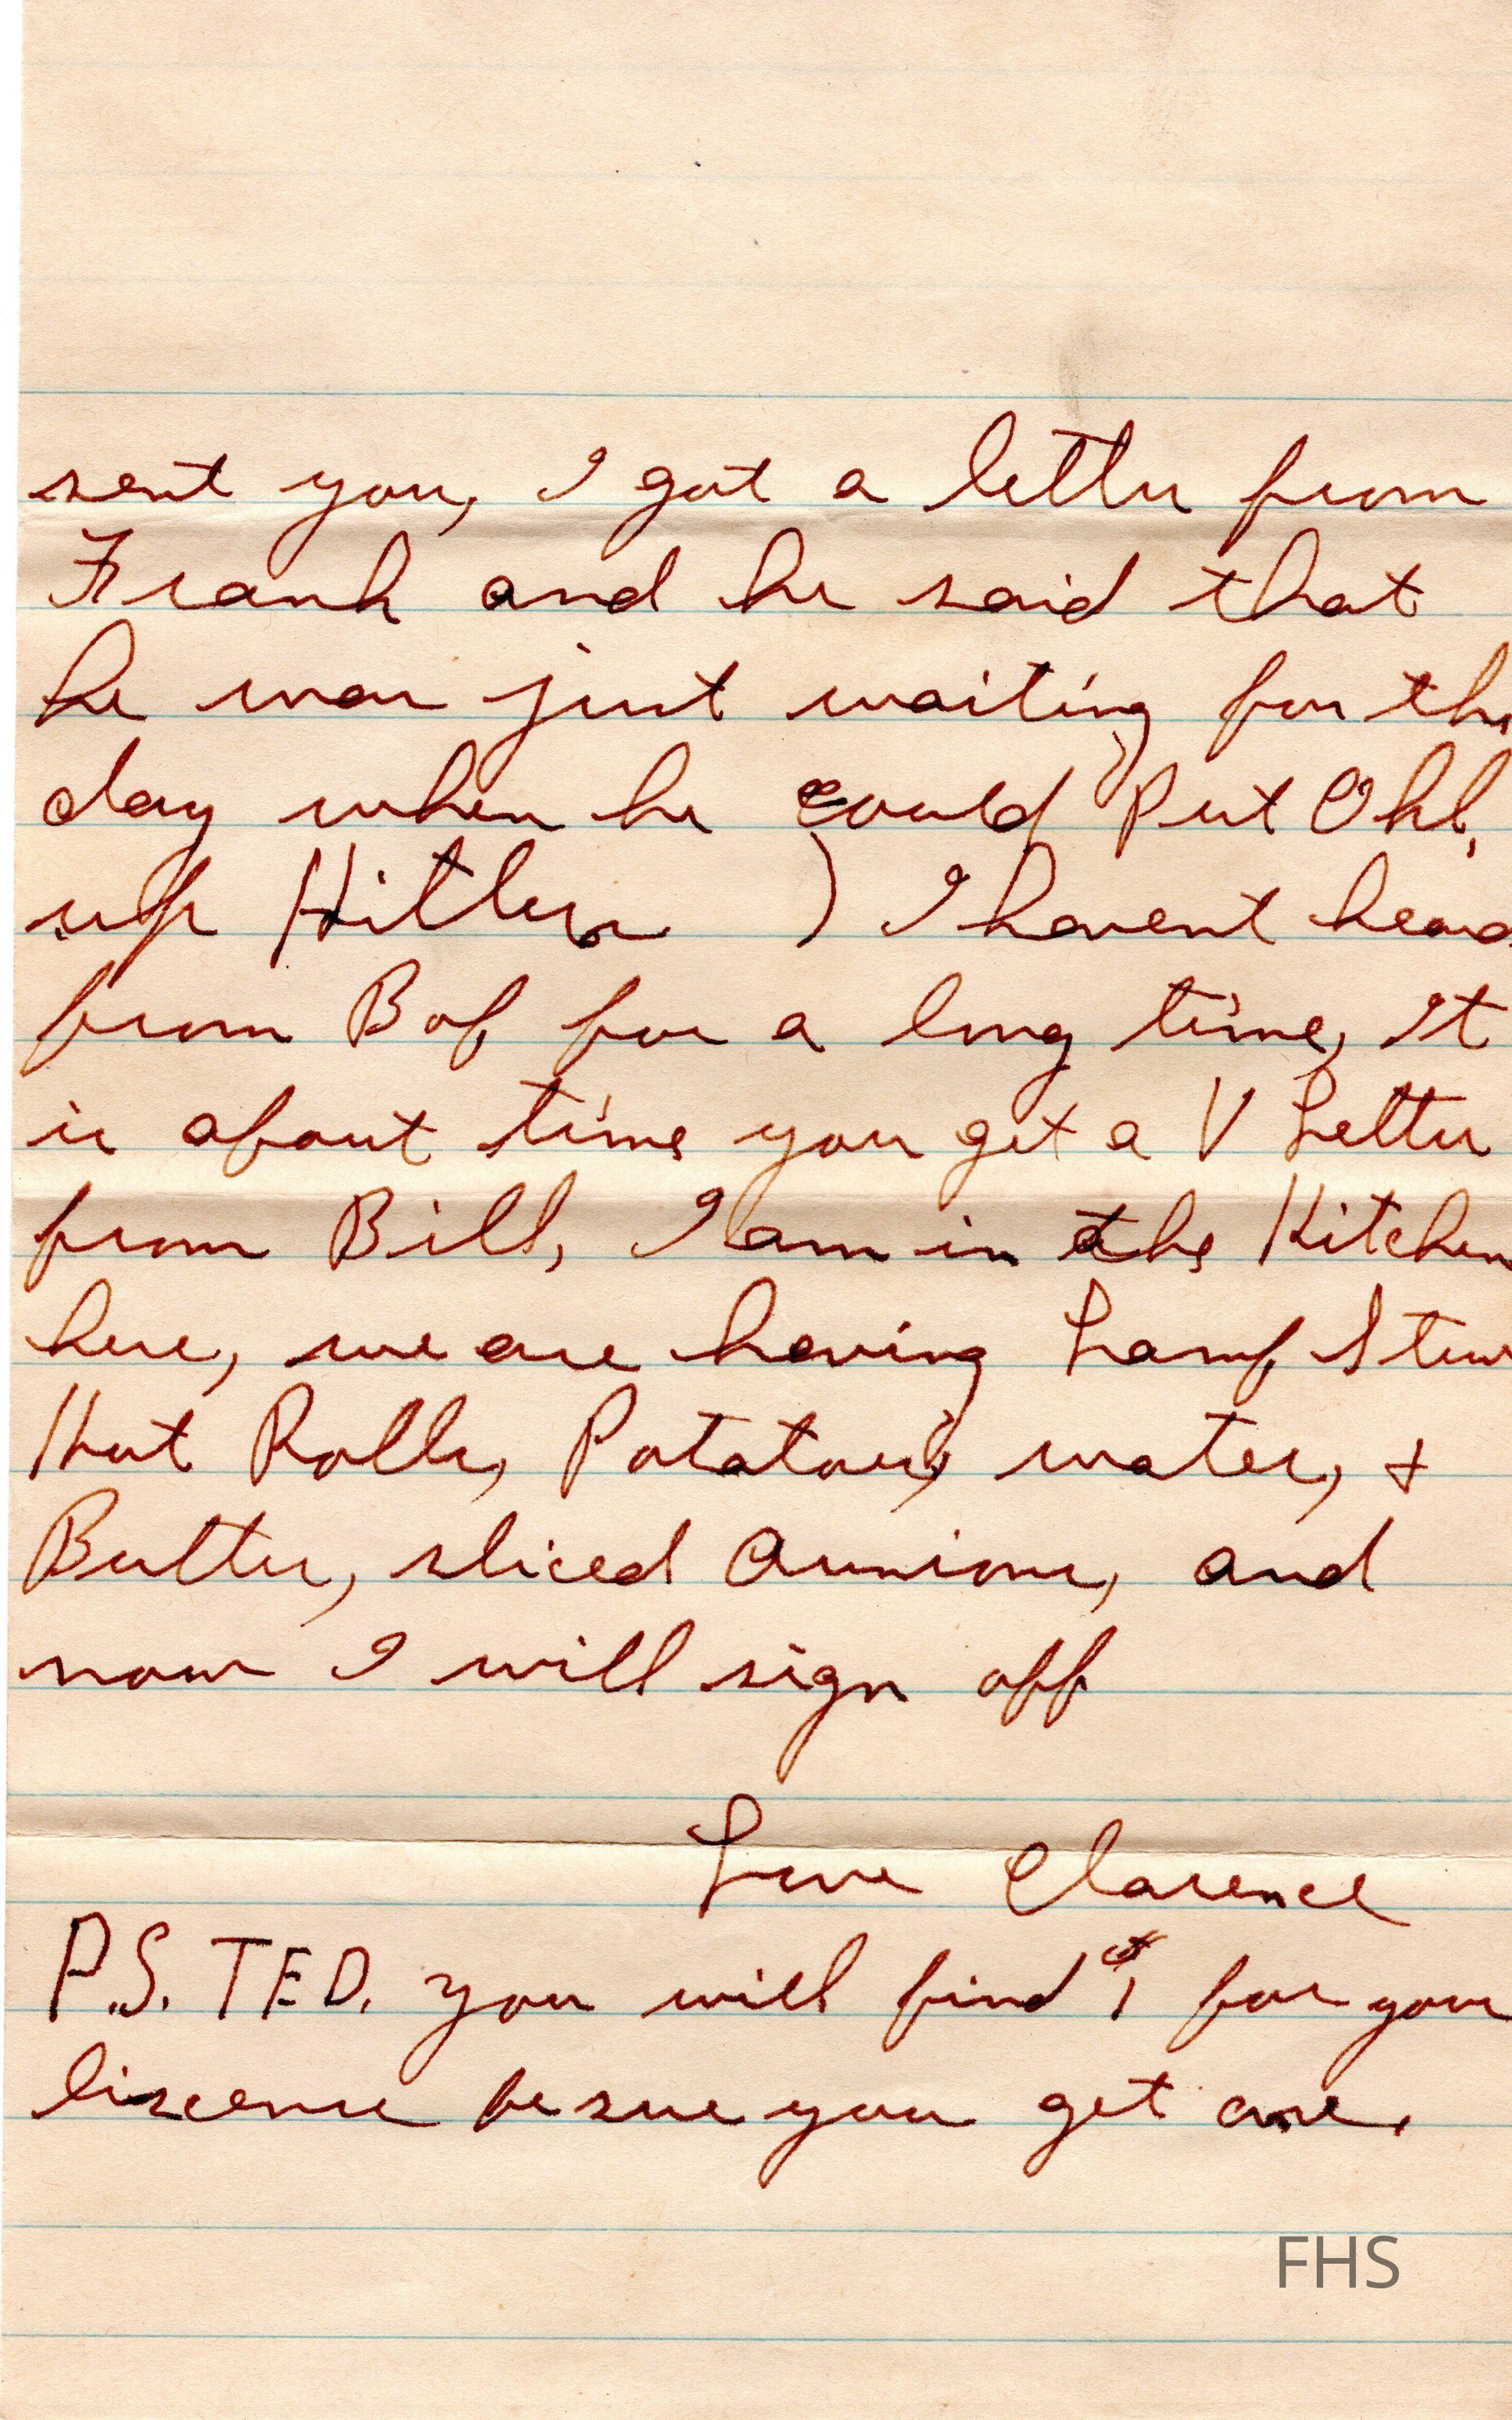 sent you, I got a letter from
Frank and he said that
he was just waiting for the
day when he could Put Ohl,
up Hitlers      ) I havent heard
from Bob for a long time, It
is about time you get a V Letter
from Bill, I am in the Kitchen
here, we are having Lamb Stew
Hot Rolls, Potatoes, water, +
Butter, sliced Ounions, and
now I will sign off
Love Clarence
P.S. TED. you will find $1 for your
liscense be sure you get one.
FHS